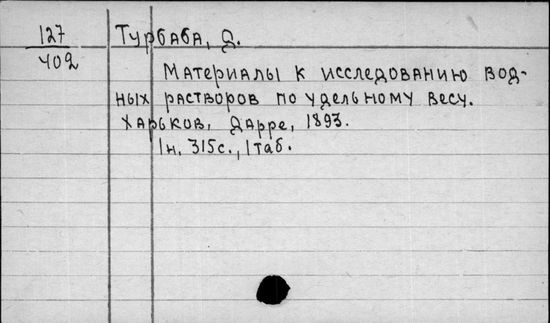 127
402
Турбаба, Д.
Материалы к исследованию вод-
ных растворов по удельному весу.
Харьков, Дарре, 1893.
1н, 315с., 1 таб.